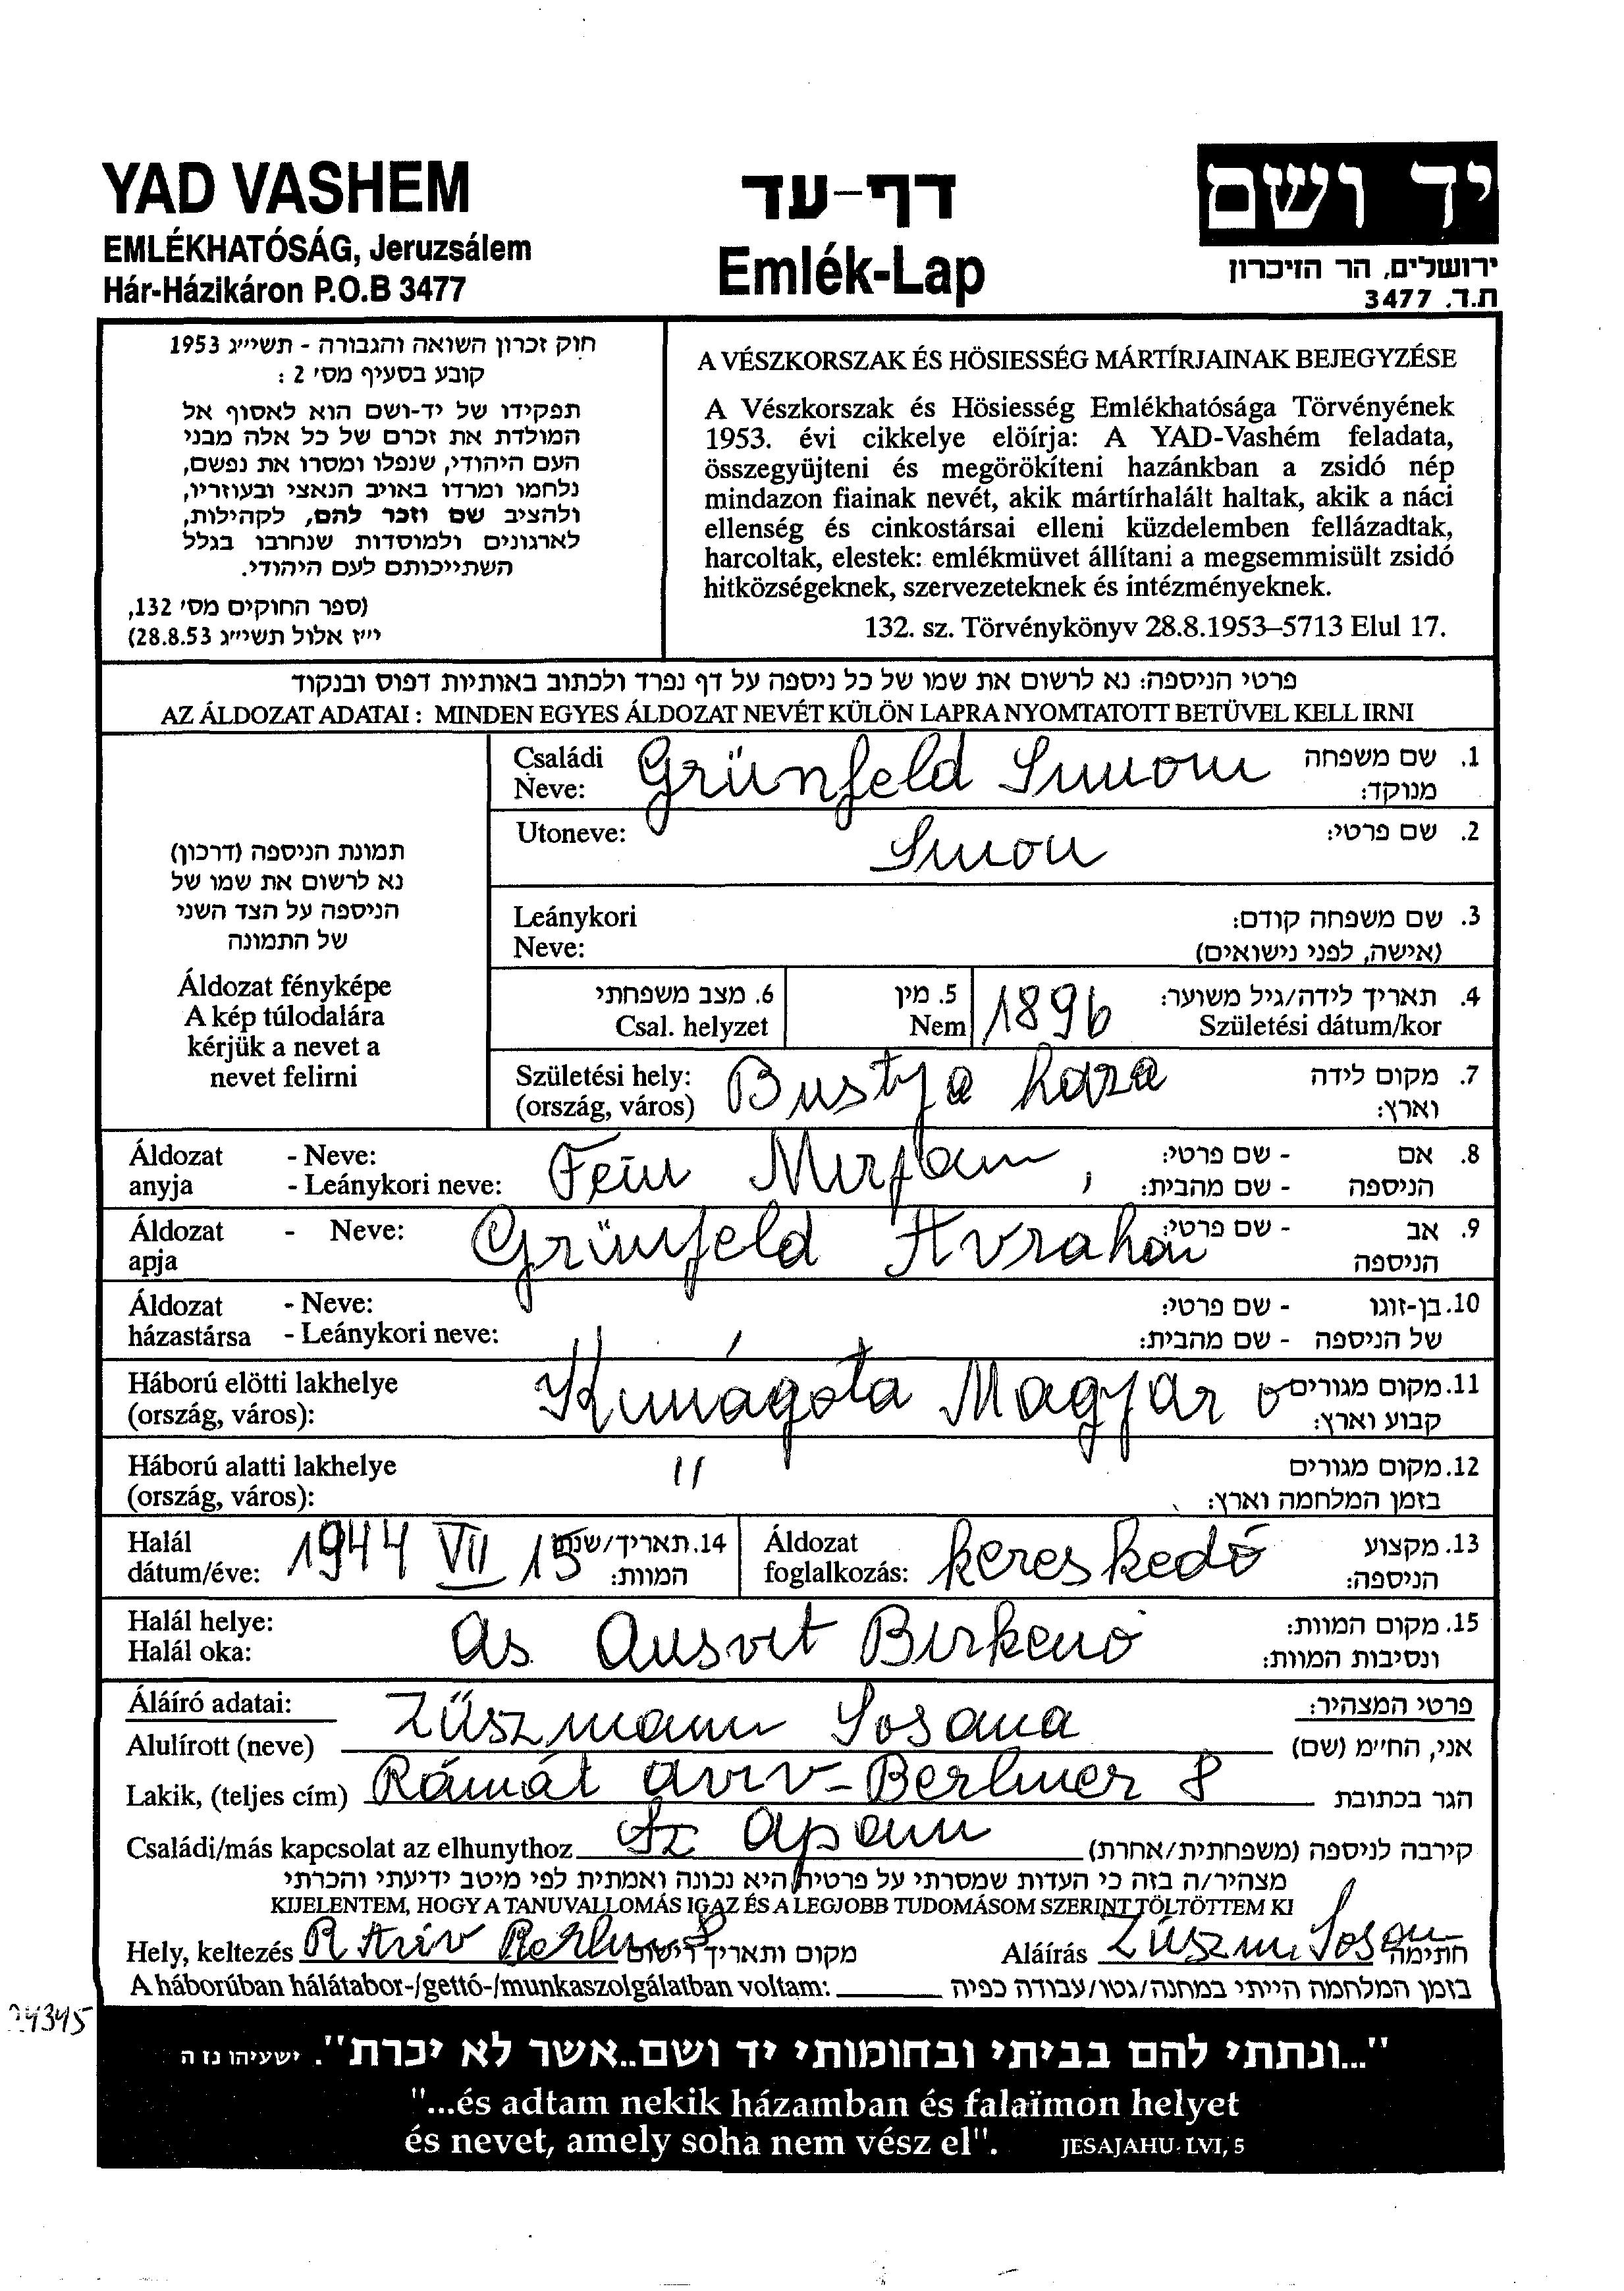 YAD VASHEM
EMLÉKHATÓSÁG, Jeruzsálem
Hár-Házikáron P.O.B 3477
דף-עד
Emlék-Lap
יד ושם
ירושלים, הר הזיכרון
ת.ד. 3477
חוק זכרון השואה והגבורה - תשי״ג 1953
קובע בסעיף מס׳ 2 :
תפקידו של יד-ושם הוא לאסוף אל
המולדת את זכרם של כל אלה מבני
העם היהודי, שנפלו ומסרו את נפשם,
נלחמו ומרדו באויב הנאצי ובעוזריו,
ולהציב שם וזכר להם, לקהילות,
לארגונים ולמוסדות שנחרבו בגלל
השתייכותם לעם היהודי.
(ספר החוקים מס׳ 132,
י״ז אלול תשי״ג 28.8.53)
A VÉSZKORSZAK ÉS HÖSIESSÉG MÁRTÍRJAINAK BEJEGYZÉSE
A Vészkorszak és Hösiesség Emlékhatósága Törvényének
1953. évi cikkelye elöírja: A YAD-Vashém feladata,
összegyüjteni és megörökíteni hazánkban a zsidó nép
mindazon fiainak nevét, akik mártírhalált haltak, akik a náci
ellenség és cinkostársai elleni küzdelemben fellázadtak,
harcoltak, elestek: emlékmüvet állítani a megsemmisült zsidó
hitközségeknek, szervezeteknek és intézményeknek.
132. sz. Törvénykönyv 28.8.1953–5713 Elul 17.
פרטי הניספה: נא לרשום את שמו של כל ניספה על דף נפרד ולכתוב באותיות דפוס ובנקוד
AZ ÁLDOZAT ADATAI : MINDEN EGYES ÁLDOZAT NEVÉT KÜLÖN LAPRA NYOMTATOTT BETÜVEL KELL IRNI
תמונת הניספה (דרכון)
נא לרשום את שמו של
הניספה על הצד השני
של התמונה
Áldozat fényképe
A kép túlodalára
kérjük a nevet a
nevet felirni
Családi Neve: Grünfeld Simon 1. שם משפחה מנוקד:
Utoneve: Simon 2. שם פרטי:
Leánykori Neve: 3. שם משפחה קודם: (אישה, לפני נישואים)
6. מצב משפחתי Csal. helyzet 5. מין Nem 1896 4. תאריך לידה/גיל משוער: Születési dátum/kor
Születési hely: (ország, város) Bustya haza 7. מקום לידה וארץ:
Áldozat anyja - Neve: - Leánykori neve: Fein Mirjam, 8. אם הניספה - שם פרטי: - שם מהבית:
Áldozat apja - Neve: Grünfeld Avraham 9. אב הניספה - שם פרטי:
Áldozat házastársa - Neve: - Leánykori neve: / 10. בן-זוגו של הניספה - שם פרטי: - שם מהבית:
Háború elötti lakhelye (ország, város): Kunágota Magyar o 11. מקום מגורים קבוע וארץ:
Háború alatti lakhelye (ország, város): 11 12. מקום מגורים בזמן המלחמה וארץ:
Halál dátum/éve: 1944 VII 15 14. תאריך/שנת המוות: Áldozat foglalkozás: kereskedő 13. מקצוע הניספה:
Halál helye: Halál oka: as Ausvit Birkenó 15. מקום המוות: ונסיבות המוות:
Áláíró adatai: פרטי המצהיר:
Alulírott (neve) Züszmann Sosana אני, החי״מ (שם)
Lakik, (teljes cím) Rámát aviv-Berliner 8 הגר בכתובת
Családi/más kapcsolat az elhunythoz Az apám קירבה לניספה (משפחתית/אחרת)
מצהיר/ה בזה כי העדות שמסרתי על פרטיה היא נכונה ואמתית לפי מיטב ידיעתי והכרתי
KIJELENTEM, HOGY A TANUVALLOMÁS IGAZ ÉS A LEGJOBB TUDOMÁSOM SZERINT TÖLTÖTTEM KI
Hely, keltezés R Aviv Berliner 8 מקום ותאריך רישום Aláírás Züszm. Sosan חתימה
A háborúban hálátabor-/gettó-/munkaszolgálatban voltam: בזמן המלחמה הייתי במחנה/גטו/עבודה כפיה
"...ונתתי להם בביתי ובחומותי יד ושם..אשר לא יכרת". ישעיהו נז ה
"...és adtam nekik házamban és falaïmon helyet
és nevet, amely soha nem vész el". JESAJAHU. LVI, 5